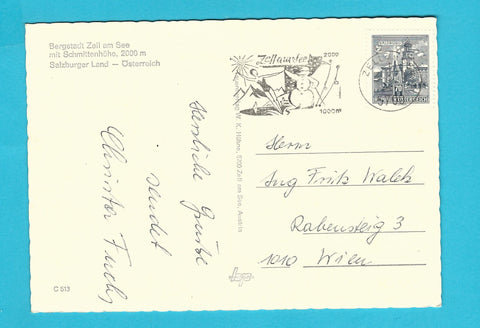 Bergstadt Zell am See
mit Schmittenhöhe, 2000 m
Salzburger Land — Österreich
Herzliche Grüße
sendet
Christa Fuchs
C 513
W. K. Hübner, 5700 Zell am See, Austria
Zell am See
2000
1000m
70
Herrn
Ing Fritz Walch
Rabensteig 3
1010 Wien